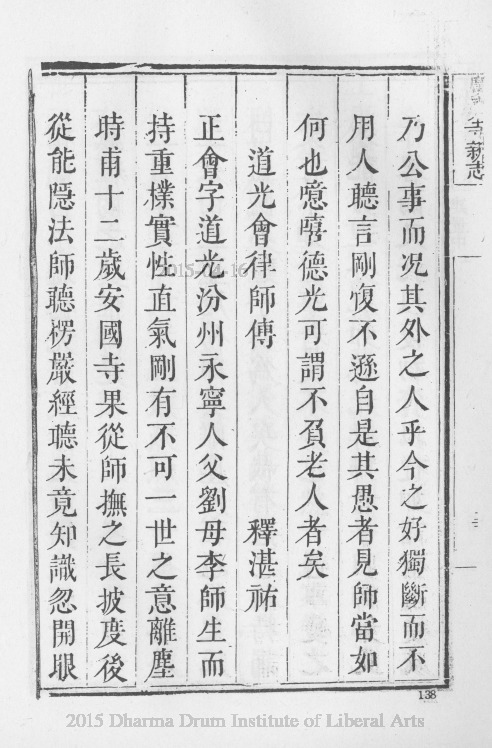 乃公事而况其外之人乎今之好獨斷而不
用人聽言剛愎不遜自是其愚者見師當如
何也噫嘻德光可謂不負老人者矣
道光會律師傳 釋湛祐
正會字道光汾州永寧人父劉母李師生而
持重樸實性直氣剛有不可一世之意離塵
時甫十二歲安國寺果從師撫之長披度後
從能隱法師聽楞嚴經聽未竟知識忽開眼
寺新志
138
2015 Dharma Drum Institute of Liberal Arts